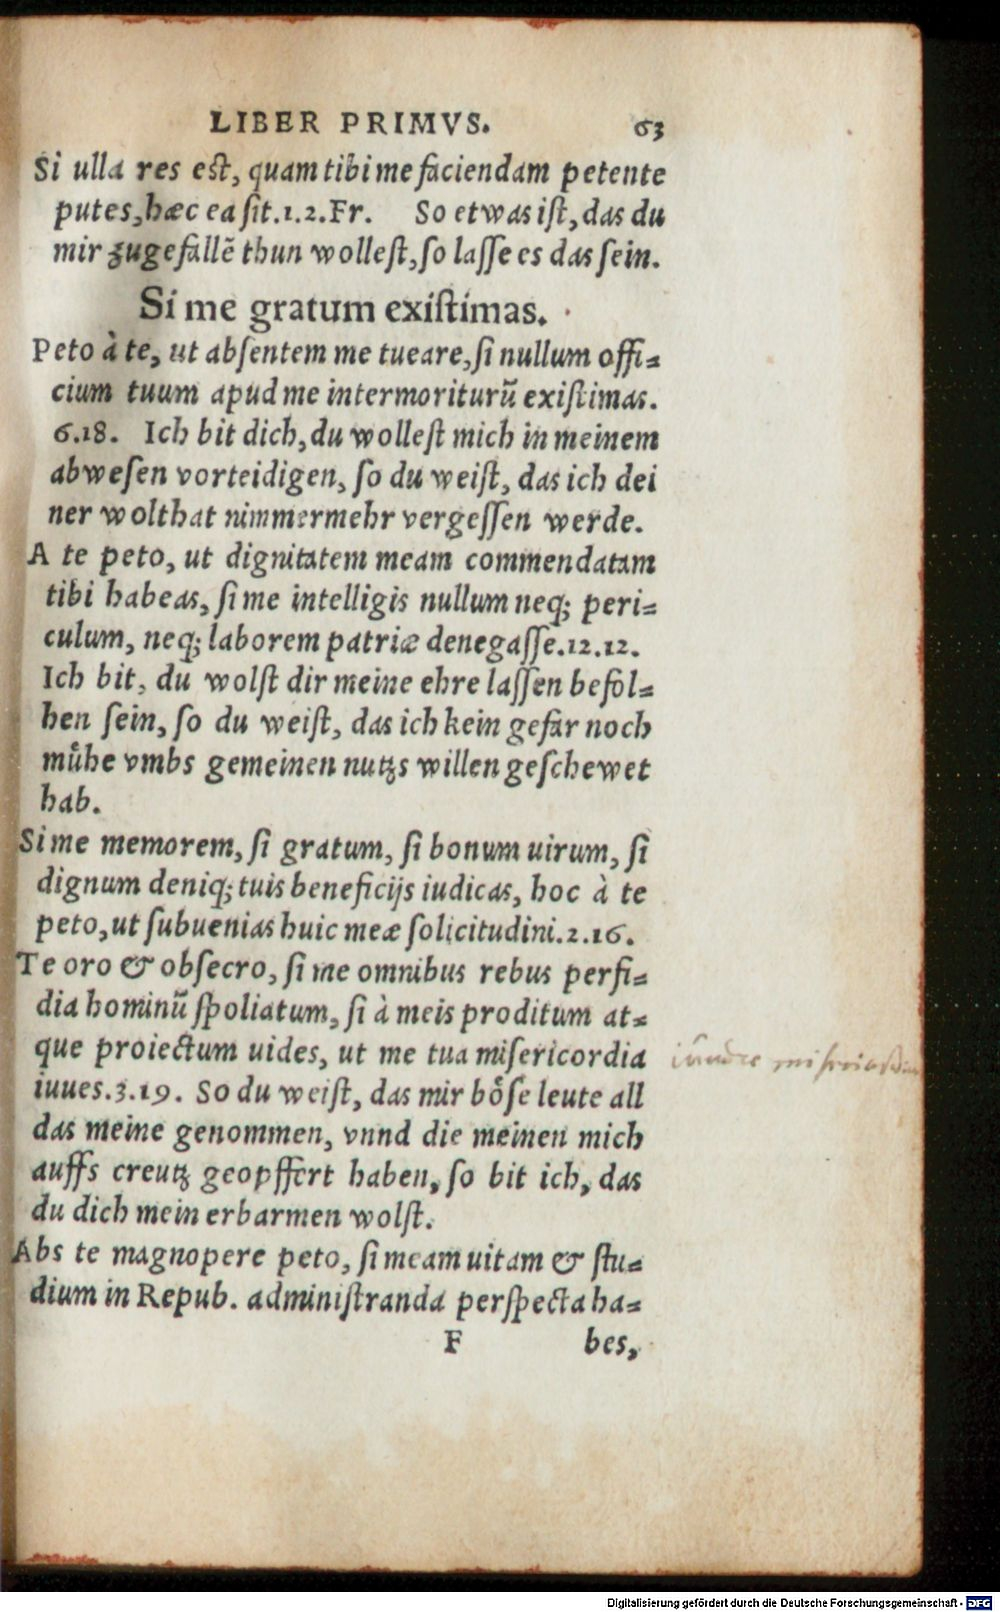 LIBER PRIMVS. 63
Si ulla res est, quam tibi me faciendam petente
putes, hæc ea ſit. 1. 2. Fr. So etwas iſt, das du
mir zugefallẽ thun wolleſt, ſo laſſe es das ſein.
Si me gratum exiſtimas.
Peto à te, ut abſentem me tueare, ſi nullum offi⸗
cium tuum apud me intermoriturũ exiſtimas.
6. 18. Ich bit dich, du wolleſt mich in meinem
abweſen vorteidigen, ſo du weiſt, das ich dei
ner wolthat nimmermehr vergeſſen werde.
A te peto, ut dignitatem meam commendatam
tibi habeas, ſi me intelligis nullum neq; peri⸗
culum, neq; laborem patriæ denegaſſe. 12. 12.
Ich bit, du wolſt dir meine ehre laſſen befol⸗
hen ſein, ſo du weiſt, das ich kein gefar noch
muͤhe vmbs gemeinen nutzs willen geſchewet
hab.
Si me memorem, ſi gratum, ſi bonum uirum, ſi
dignum deniq; tuis beneficijs iudicas, hoc à te
peto, ut ſubuenias huic meæ ſolicitudini. 2. 16.
Te oro & obſecro, ſi me omnibus rebus perfi⸗
dia hominũ ſpoliatum, ſi à meis proditum at⸗
que proiectum uides, ut me tua miſericordia
iuues. 3. 19. So du weiſt, das mir boͤſe leute all
das meine genommen, vnnd die meinen mich
auffs creutz geopffert haben, ſo bit ich, das
du dich mein erbarmen wolſt.
Abs te magnopere peto, ſi meam uitam & ſtu⸗
dium in Repub. adminiſtranda perſpecta ha⸗
F bes,
Digitalisierung gefördert durch die Deutsche Forschungsgemeinschaft - DFG